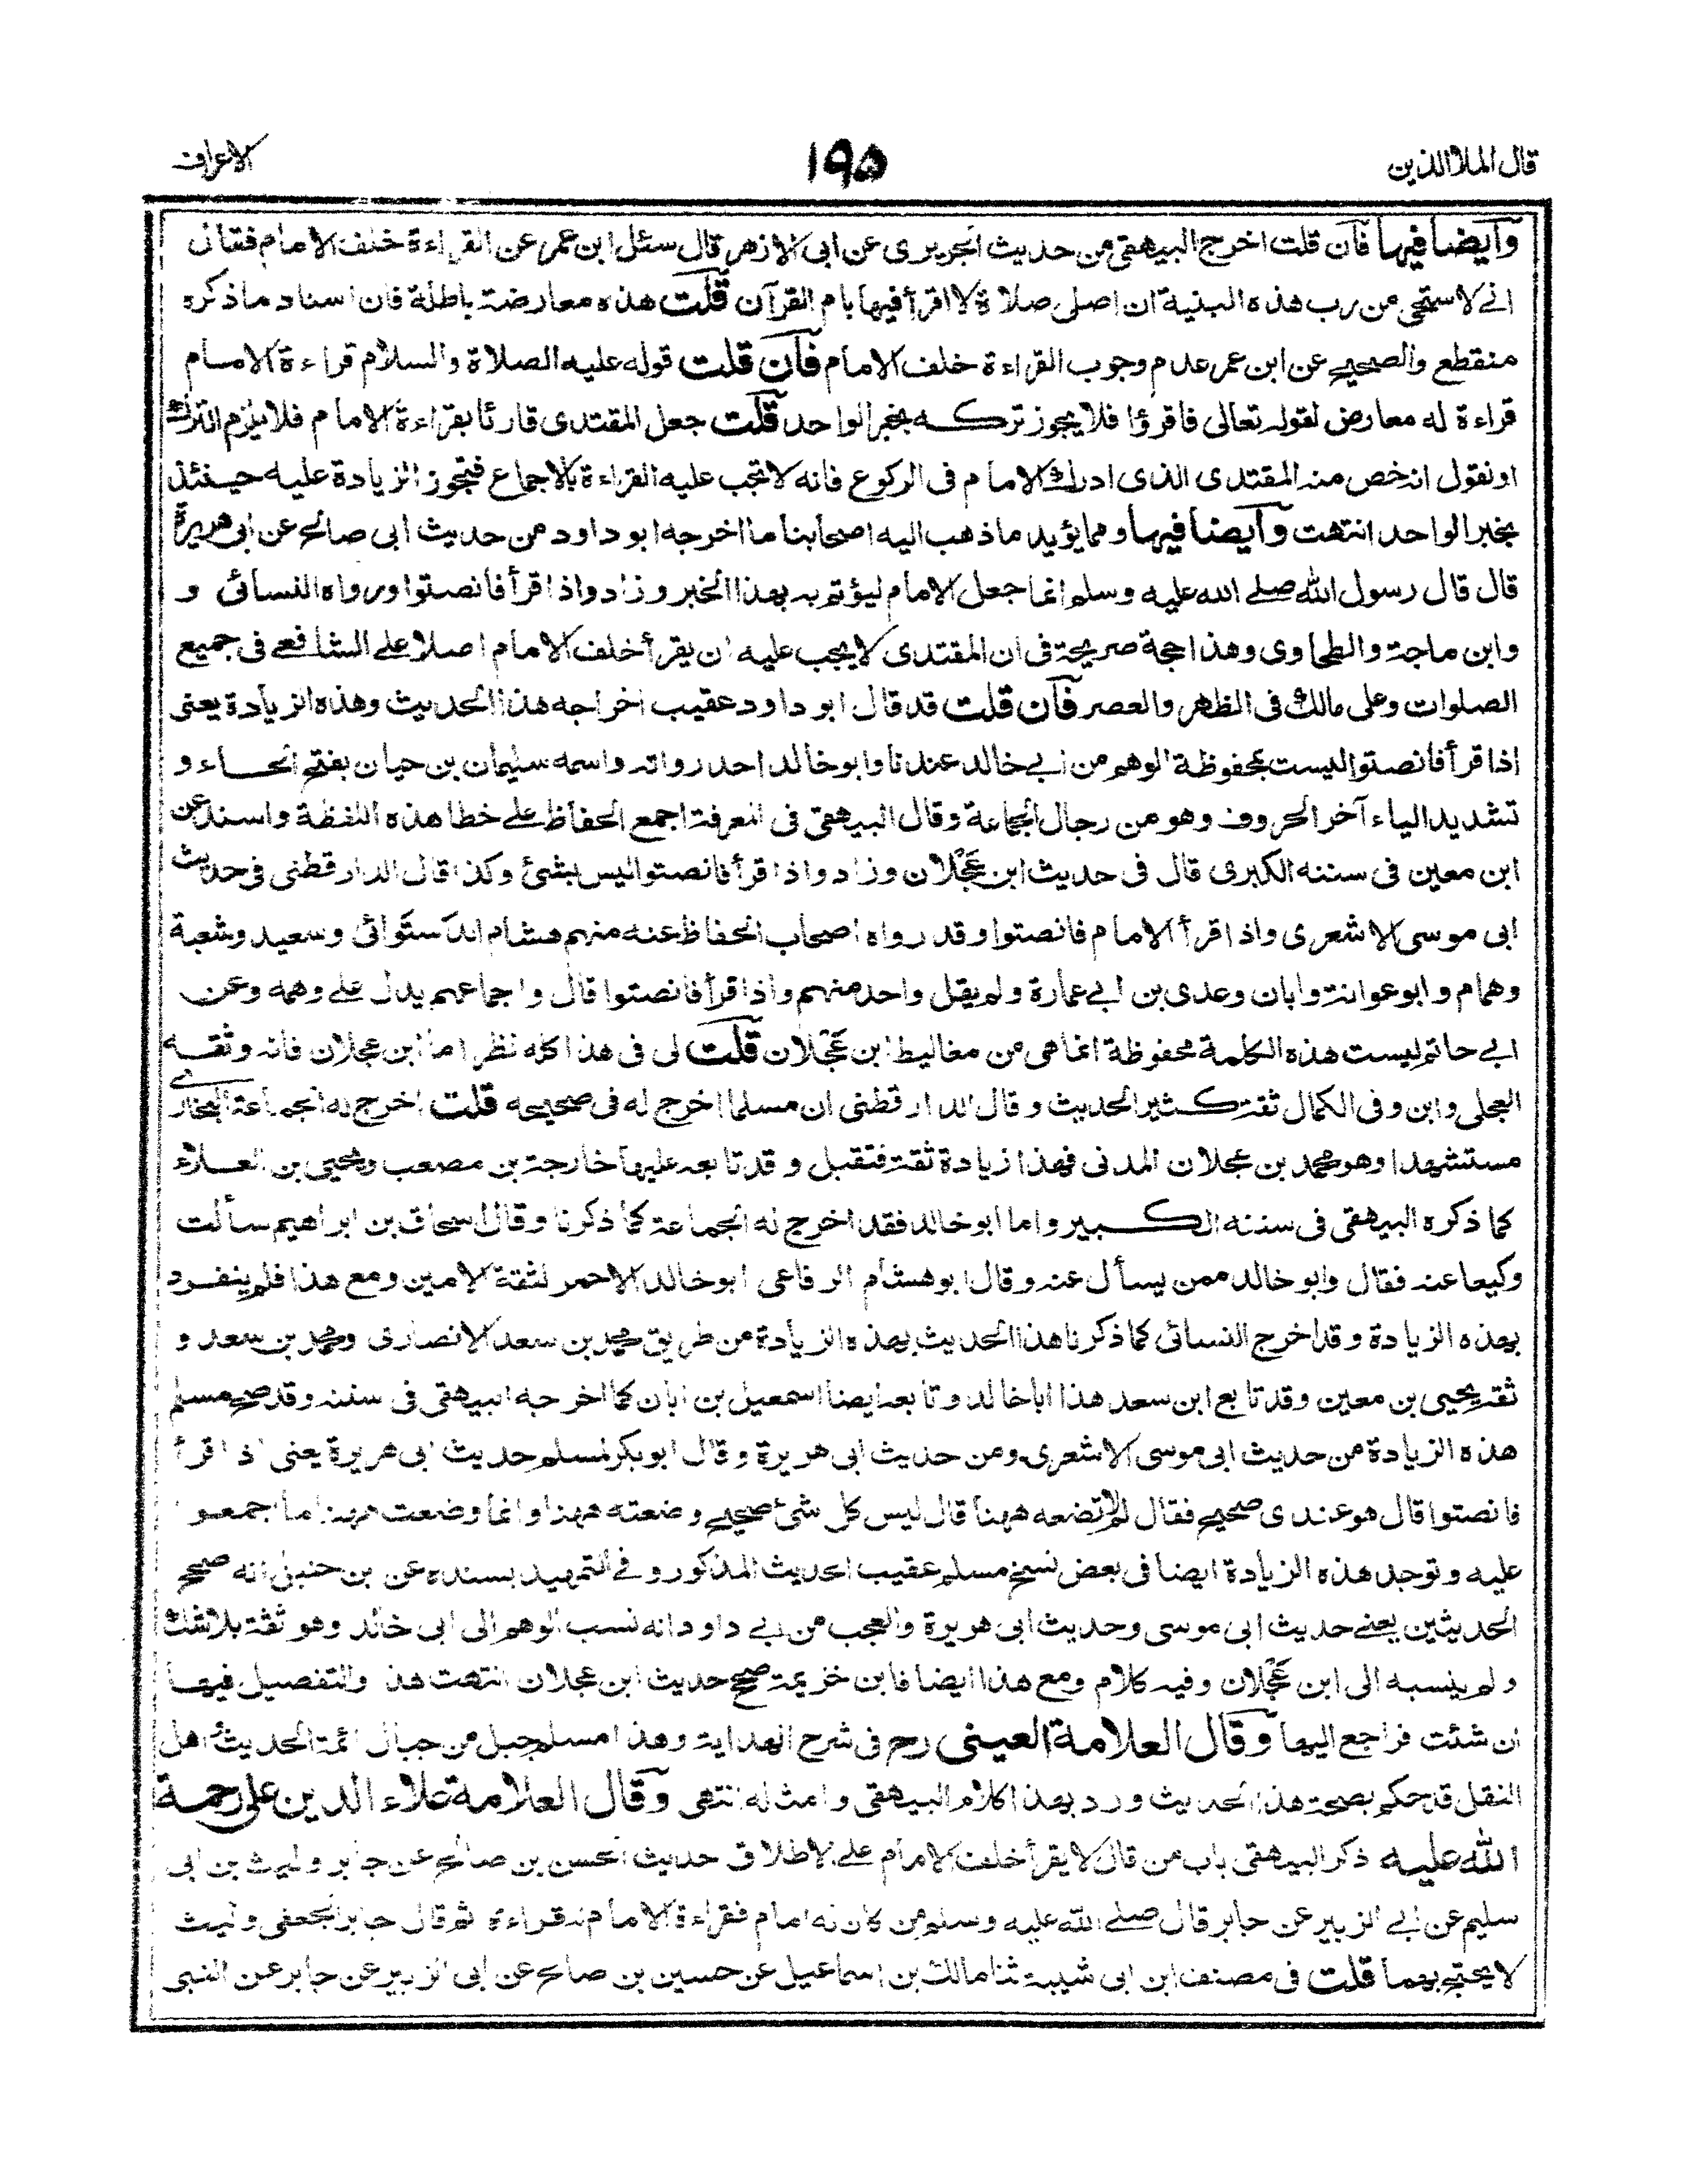 قال الملا الذين
١٩٥
الاعراف
وايضا فيها فان قلت اخرج البيهقي من حديث الجريرى عن ابى الازهر قال سئل ابن عمر عن القراءة خلف الامام فقال
انے لاستحي من رب هذه البنية ان اصلى صلاة لا اقرأ فيها بام القرآن قلت هذه معارضة باطلة فان اسناد ما ذكره
منقطع والصحيح عن ابن عمر عدم وجوب القراءة خلف الامام فان قلت قوله عليه الصلاة والسلام قراءة الامام
قراءة له معارض لقوله تعالى فاقرؤا فلا يجوز تركه بخبر الواحد قلت جعل المقتدى قارئا بقراءة الامام فلا يلزم الترك
او نقول انه خص منه المقتدى الذى ادرك الامام فى الركوع فانه لا تجب عليه القراءة بالاجماع فتجوز الزيادة عليه حينئذ
بخبر الواحد انتهت وايضا فيها ومما يؤيد ما ذهب اليه اصحابنا ما اخرجه ابو داود من حديث ابى صالح عن ابى هريرة
قال قال رسول الله صلے الله عليه وسلم انما جعل الامام ليؤتم به بهذا الخبر وزاد واذا قرأ فانصتوا ورواه النسائى و
وابن ماجة والطحاوى وهذا حجة صريحة فى ان المقتدى لا يجب عليه ان يقرأ خلف الامام اصلا علے الشافعے فى جميع
الصلوات وعلى مالك فى الظهر والعصر فان قلت قد قال ابو داود عقيب اخراجه هذا الحديث وهذه الزيادة يعنى
اذا قرأ فانصتوا ليست بمحفوظة الوهم من ابے خالد عندنا وابو خالد احد رواته واسمه سليمان بن حيان بفتح الحاء و
تشديد الياء آخر الحروف وهو من رجال الجماعة وقال البيهقى فى المعرفة اجمع الحفاظ علے خطا هذه اللفظة واسند عن
ابن معين فى سننه الكبرى قال فى حديث ابن عَجْلان وزاد واذا قرأ فانصتوا ليس بشئ وكذا قال الدارقطنى فى حديث
ابى موسى الاشعرى واذا قرأ الامام فانصتوا وقد رواه اصحاب الحفاظ عنه منهم هشام الدستوائى وسعيد وشعبة
وهمام وابو عوانة وابان وعدى بن ابے عمارة ولم يقل واحد منهم واذا قرأ فانصتوا قال واجماعهم يدل علے وهمه وعن
ابے حاتم ليست هذه الكلمة محفوظة انما هى من مغاليط ابن عَجْلان قلت لى فى هذا كله نظر اما ابن عجلان فانه وثقه
العجلى وابن وفى الكمال ثقة كثير الحديث وقال الدارقطنى ان مسلما اخرج له فى صحيحه قلت اخرج له الجماعة البخارے
مستشهدا وهو محمد بن عجلان المدنى فهذا زيادة ثقة فتقبل وقد تابعه عليها خارجة بن مصعب ويحيى بن العلاء
كما ذكره البيهقى فى سننه الكبير واما ابو خالد فقد اخرج له الجماعة كما ذكرنا وقال اسحاق بن ابراهيم سألت
وكيعا عنه فقال وابو خالد ممن يسأل عنه وقال ابو هشام الرفاعى ابو خالد الاحمر لثقة الامين ومع هذا فلم ينفرد
بهذه الزيادة وقد اخرج النسائى كما ذكرنا هذا الحديث بهذه الزيادة من طريق محمد بن سعد الانصارى ومحمد بن سعد و
ثقه يحيى بن معين وقد تابع ابن سعد هذا ابا خالد وتابعه ايضا اسمعيل بن ابان كما اخرجه البيهقى فى سننه وقد صحح مسلم
هذه الزيادة من حديث ابى موسى الاشعرى ومن حديث ابى هريرة وقال ابو بكر لمسلم حديث ابى هريرة يعنى اذا قرأ
فانصتوا قال هو عندى صحيح فقال لم لا تضعه ههنا قال ليس كل شئ صحيح وضعته ههنا وانما وضعت ههنا ما اجمعوا
عليه وتوجد هذه الزيادة ايضا فى بعض نسخ مسلم عقيب الحديث المذكور وفے التمهيد بسنده عن بن حنبل انه صحح
الحديثين يعنے حديث ابى موسى وحديث ابى هريرة والعجب من ابے داود انه نسب الوهم الى ابى خالد وهو ثقة بلا شك
ولم ينسبه الى ابن عَجْلان وفيه كلام ومع هذا ايضا فابن خزيمة صحح حديث ابن عجلان انتهت هذا والتفصيل فيها
ان شئت فراجع اليها وقال العلامة العينى رح فى شرح الهداية وهذا مسلم جبل من جبال ائمة الحديث اهل
النقل قد حكم بصحة هذا الحديث ورد بهذا كلام البيهقى وامثاله انتهى وقال العلامة علاء الدين على رحمة
الله عليه ذكر البيهقى باب من قال لا يقرأ خلف الامام علے الاطلاق حديث الحسن بن صالح عن جابر وليث بن ابى
سليم عن ابے الزبير عن جابر قال صلے الله عليه وسلم من كان له امام فقراءة الامام له قراءة ثم قال جابر الجعفى وليث
لا يحتج بهما قلت فى مصنف ابن ابى شيبة ثنا مالك بن اسماعيل عن حسين بن صالح عن ابى الزبير عن جابر عن النبى